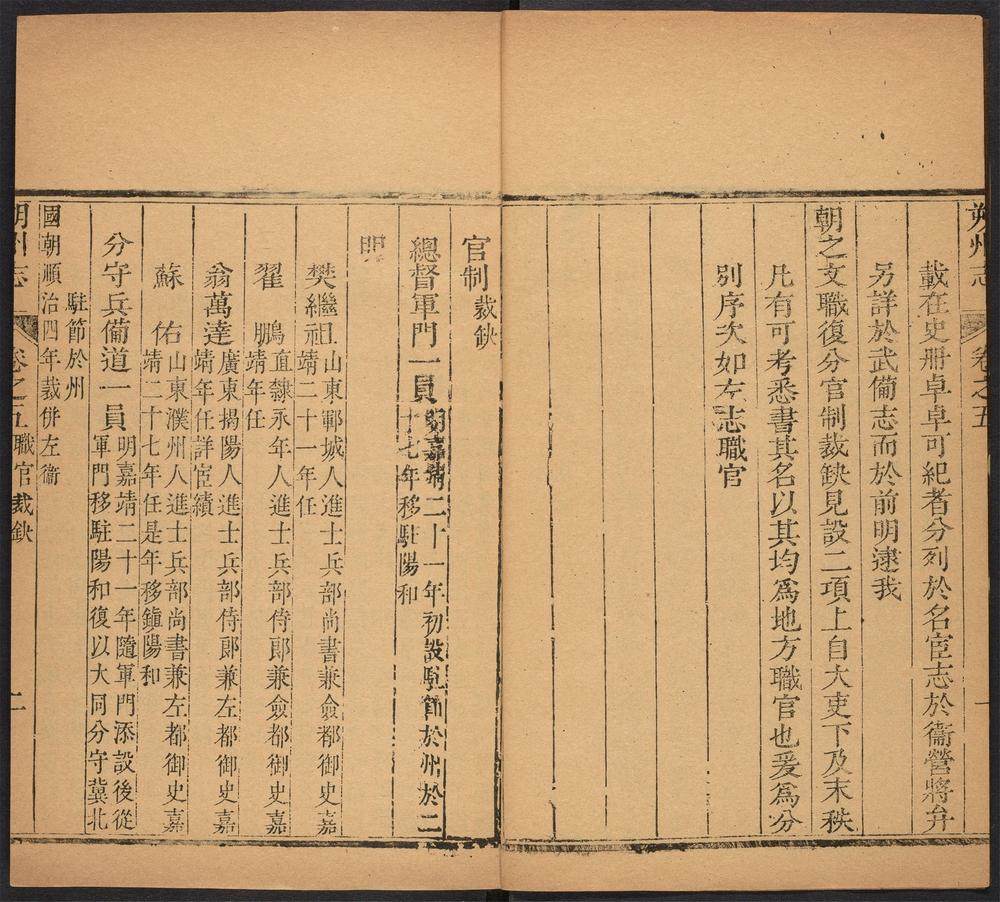 朔州志 卷之五 一
載在史冊卓卓可紀者分列於名宦志於衞營將弁
另詳於武備志而於前明逮我
朝之文職復分官制裁缺見設二項上自大吏下及末秩
凡有可考悉書其名以其均爲地方職官也爰爲分
別序次如左志職官
官制裁缺
總督軍門一員明嘉靖二十一年初設駐節於州於二
十七年移駐陽和
明
樊繼祖山東鄆城人進士兵部尚書兼僉都御史嘉
靖二十一年任
翟鵬直隸永年人進士兵部侍郎兼僉都御史嘉
靖年任
翁萬達廣東揭陽人進士兵部侍郎兼左都御史嘉
靖年任詳宦績
蘇佑山東濮州人進士兵部尚書兼左都御史嘉
靖二十七年任是年移鎭陽和
分守兵備道一員明嘉靖二十一年隨軍門添設後從
軍門移駐陽和復以大同分守冀北
駐節於州
國朝順治四年裁併左衞
朔州志 卷之五職官裁缺 二